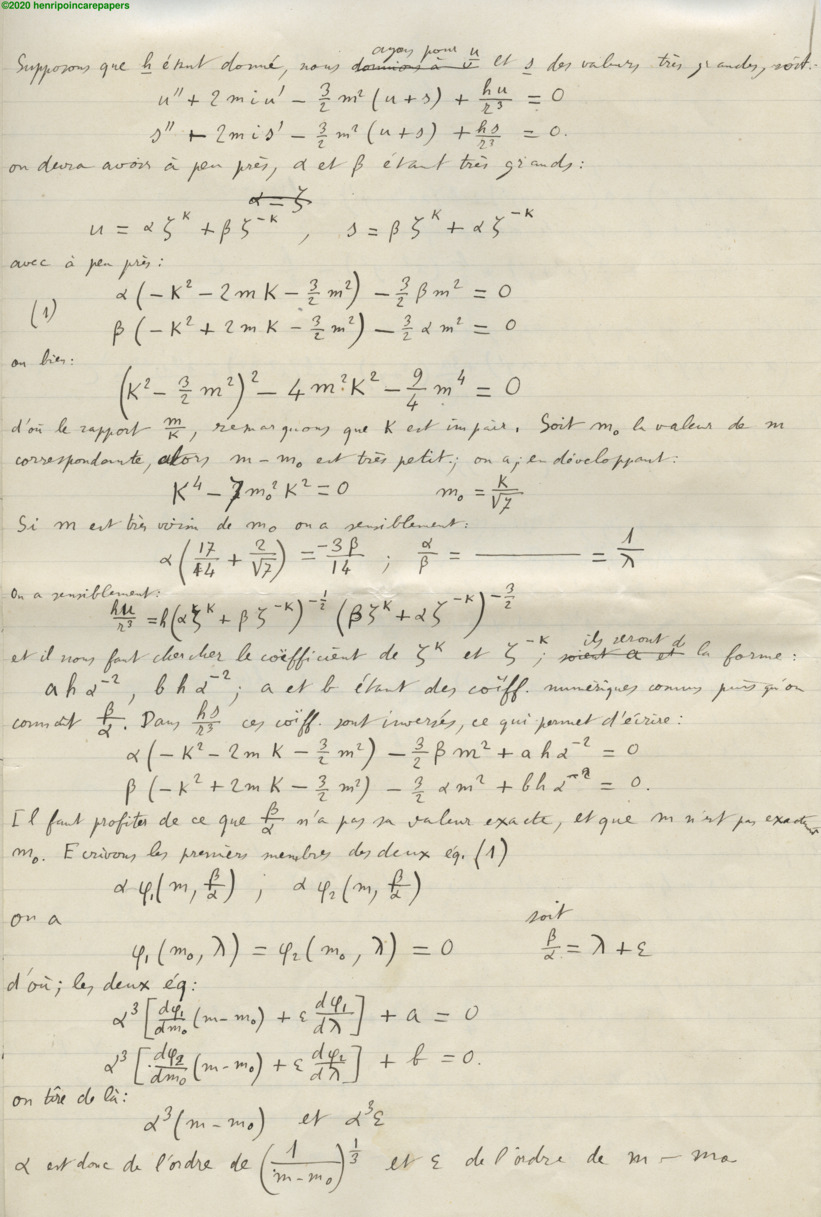 ©2020 henripoincarepapers
Supposons que h étant donné, nous ayons pour u et s des valeurs très grandes, soit:
u'' + 2miu' − 3/2 m² (u+s) + hu/r³ = 0
s'' + 2mis' − 3/2 m² (u+s) + hs/r³ = 0.
on devra avoir à peu près, α et β étant très grands:
α = ζ
u = α ζ^K + β ζ^−K , s = β ζ^K + α ζ^−K
avec à peu près:
(1) α (−K² − 2mK − 3/2 m²) − 3/2 β m² = 0
β (−K² + 2mK − 3/2 m²) − 3/2 α m² = 0
ou bien:
(K² − 3/2 m²)² − 4m²K² − 9/4 m⁴ = 0
d'où le rapport m/K, remarquons que K est impair. Soit m₀ la valeur de m
correspondante, alors m − m₀ est très petit; on a; en développant:
K⁴ − 7m₀²K² = 0 m₀ = K/√7
Si m est très voisin de m₀ on a sensiblement:
α (17/14 + 2/√7) = −3β/14 ; α/β = ——— = 1/λ
On a sensiblement:
hu/r³ = h(αζ^K + βζ^−K)^−1/2 (βζ^K + αζ^−K)^−3/2
et il nous faut chercher le coëfficient de ζ^K et ζ^−K; ils seront de la forme:
a h α^−2, b h α^−2; a et b étant des coëff. numériques connus puisqu'on
connaît β/α. Dans hs/r³ ces coëff. sont inversés, ce qui permet d'écrire:
α (−K² − 2mK − 3/2 m²) − 3/2 β m² + a h α^−2 = 0
β (−K² + 2mK − 3/2 m²) − 3/2 α m² + b h α^−2 = 0.
Il faut profiter de ce que β/α n'a pas sa valeur exacte, et que m n'est pas exactem^t
m₀. Ecrivons les premiers membres des deux éq. (1)
α φ₁(m, β/α) ; α φ₂(m, β/α)
on a soit
φ₁(m₀, λ) = φ₂(m₀, λ) = 0 β/α = λ + ε
d'où; les deux éq:
α³ [dφ₁/dm₀ (m−m₀) + ε dφ₁/dλ] + a = 0
α³ [dφ₂/dm₀ (m−m₀) + ε dφ₂/dλ] + b = 0.
on tire de là:
α³(m − m₀) et α³ε
α est donc de l'ordre de (1/(m−m₀))^1/3 et ε de l'ordre de m − m₀